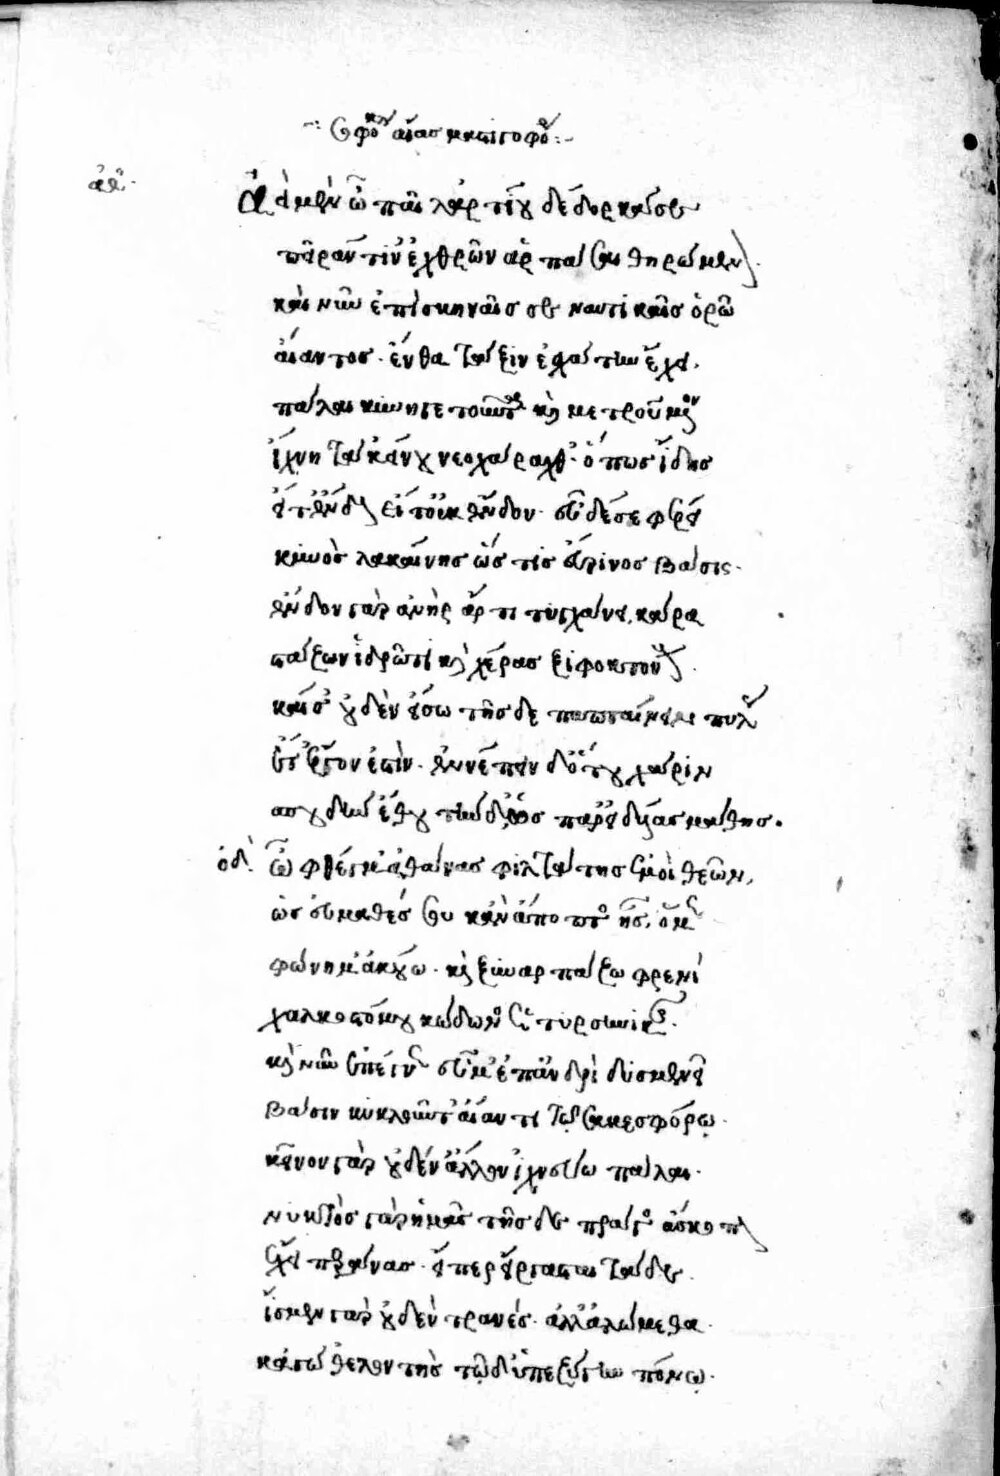 σοφοκλ αἴας μαστιγοφό
ἀθ
Ἀεὶ μὲν ὦ παῖ λαρτίου δέδορκά σε
πεῖράν τιν' ἐχθρῶν ἁρπάσαι θηρώμενον.
καὶ νῦν ἐπὶ σκηναῖς σε ναυτικαῖς ὁρῶ
αἴαντος. ἔνθα τάξιν ἐσχάτην ἔχει.
πάλαι κυνηγετοῦντα καὶ μετρούμενον
ἴχνη τὰ κείνου νεοχάραχθ' ὅπως ἴδης
εἴτ' ἔνδον εἴτ' οὐκ ἔνδον. εὖ δέ σ' ἐκφέρει
κυνὸς λακαίνης ὥς τις εὔρινος βάσις.
ἔνδον γὰρ ἀνὴρ ἄρτι τυγχάνει. κάρα
στάζων ἱδρῶτι καὶ χέρας ξιφοκτόνους.
καί σ' οὐδὲν εἴσω τῆσδε παπταίνειν πύλης
ἔτ' ἔργον ἐστίν. ἐννέπειν δ' ὅτου χάριν
σπουδὴν ἔθου τήνδ' ὡς παρ' εἰδυίας μάθης.
ὀδ. ὦ φθέγμ' ἀθάνας φιλτάτης ἐμοὶ θεῶν,
ὡς εὐμαθές σου κἂν ἄποπτος ἦς, ὅμως
φώνημ' ἀκούω. καὶ ξυναρπάζω φρενὶ
χαλκοστόμου κώδωνος ὡς τυρσηνικῆς.
καὶ νῦν ἐπέγνως εὖ μ' ἐπ' ἀνδρὶ δυσμενεῖ
βάσιν κυκλοῦντ' αἴαντι τῷ σακεσφόρῳ.
κεῖνον γὰρ οὐδέν' ἄλλον ἰχνεύω πάλαι.
νυκτὸς γὰρ ἡμᾶς τῆσδε πρᾶγος ἄσκοπον
ἔχει περάνας. εἴπερ εἴργασται τάδε.
ἴσμεν γὰρ οὐδὲν τρανές. ἀλλ' ἀλώμεθα.
κἀγὼ 'θελοντὴς τῷδ' ὑπεζύγην πόνῳ.